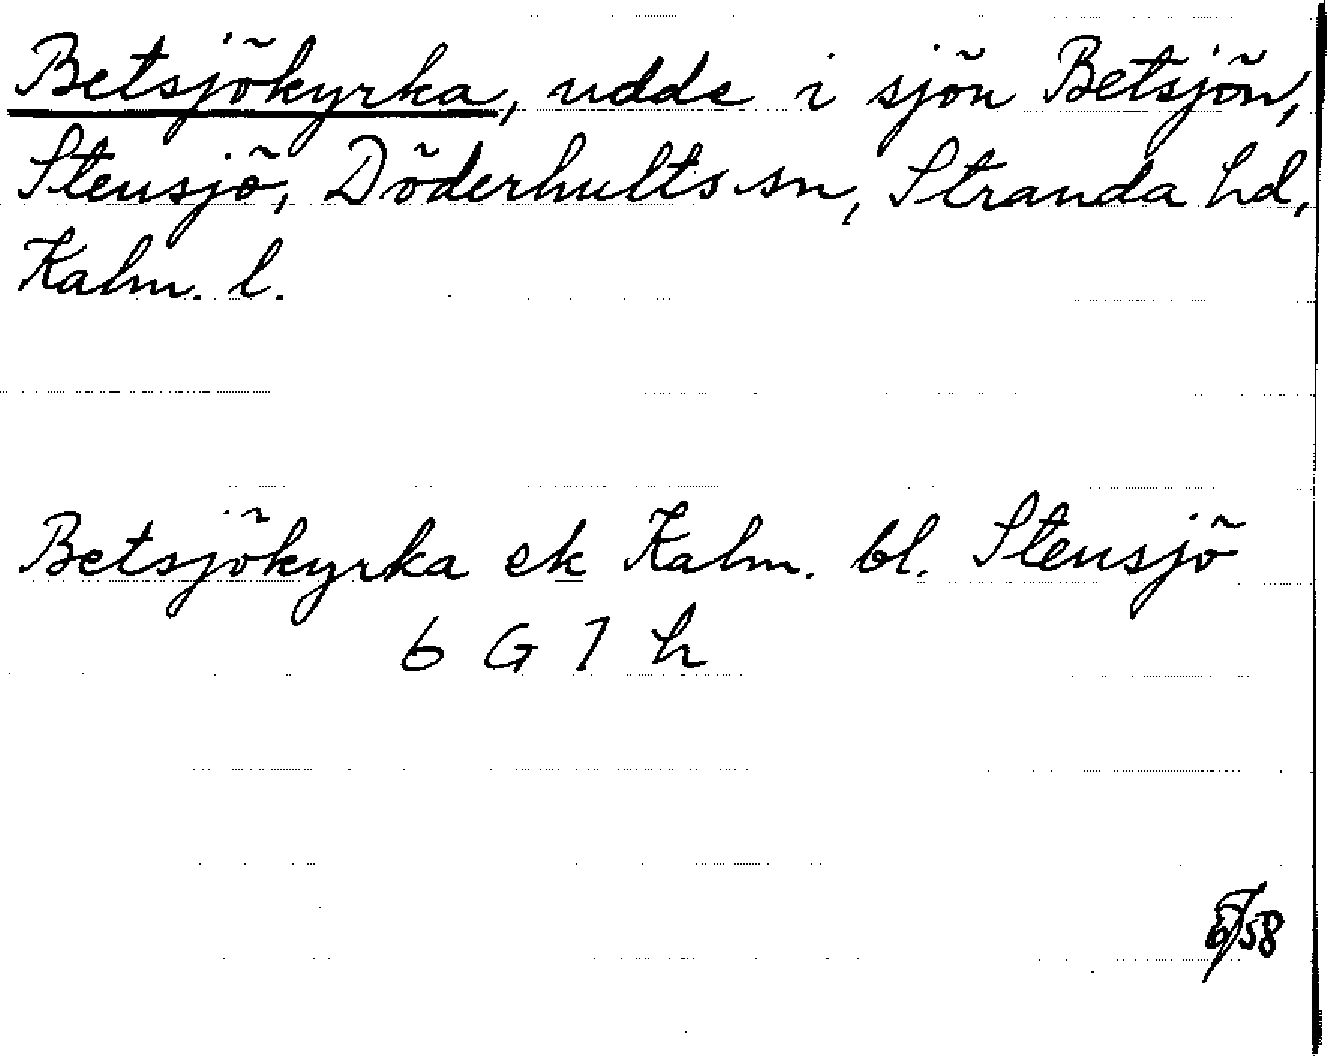 Betsjökyrka, udde i sjön Betsjön,
Stensjö, Döderhults sn, Stranda hd,
Kalm. l.
Betsjökyrka ek Kalm. bl. Stensjö
6 G 7 h